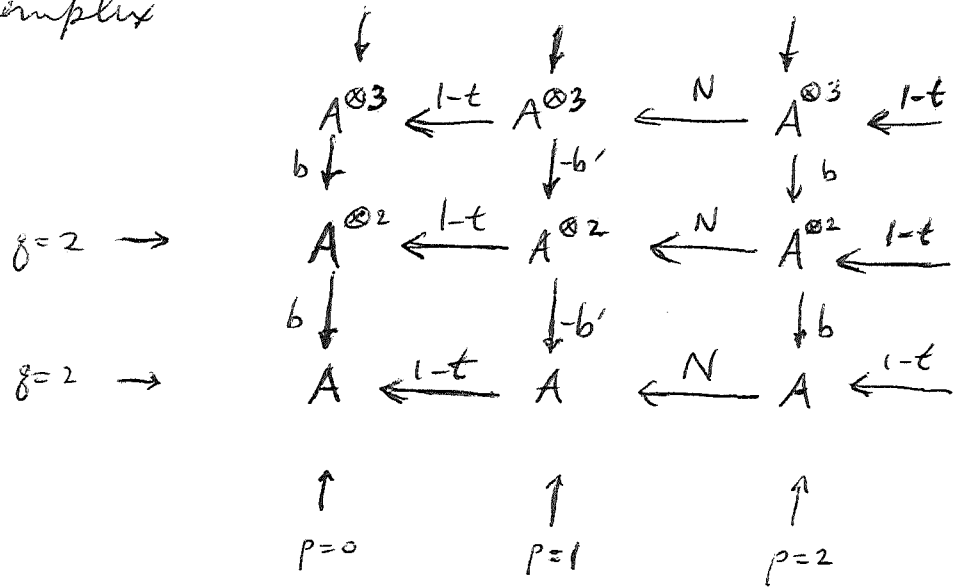 omplex
A⊗3 1-t A⊗3 N A⊗3 1-t
b -b' b
q=2 → A⊗2 1-t A⊗2 N A⊗2 1-t
b -b' b
q=2 → A 1-t A N A 1-t
p=0 p=1 p=2